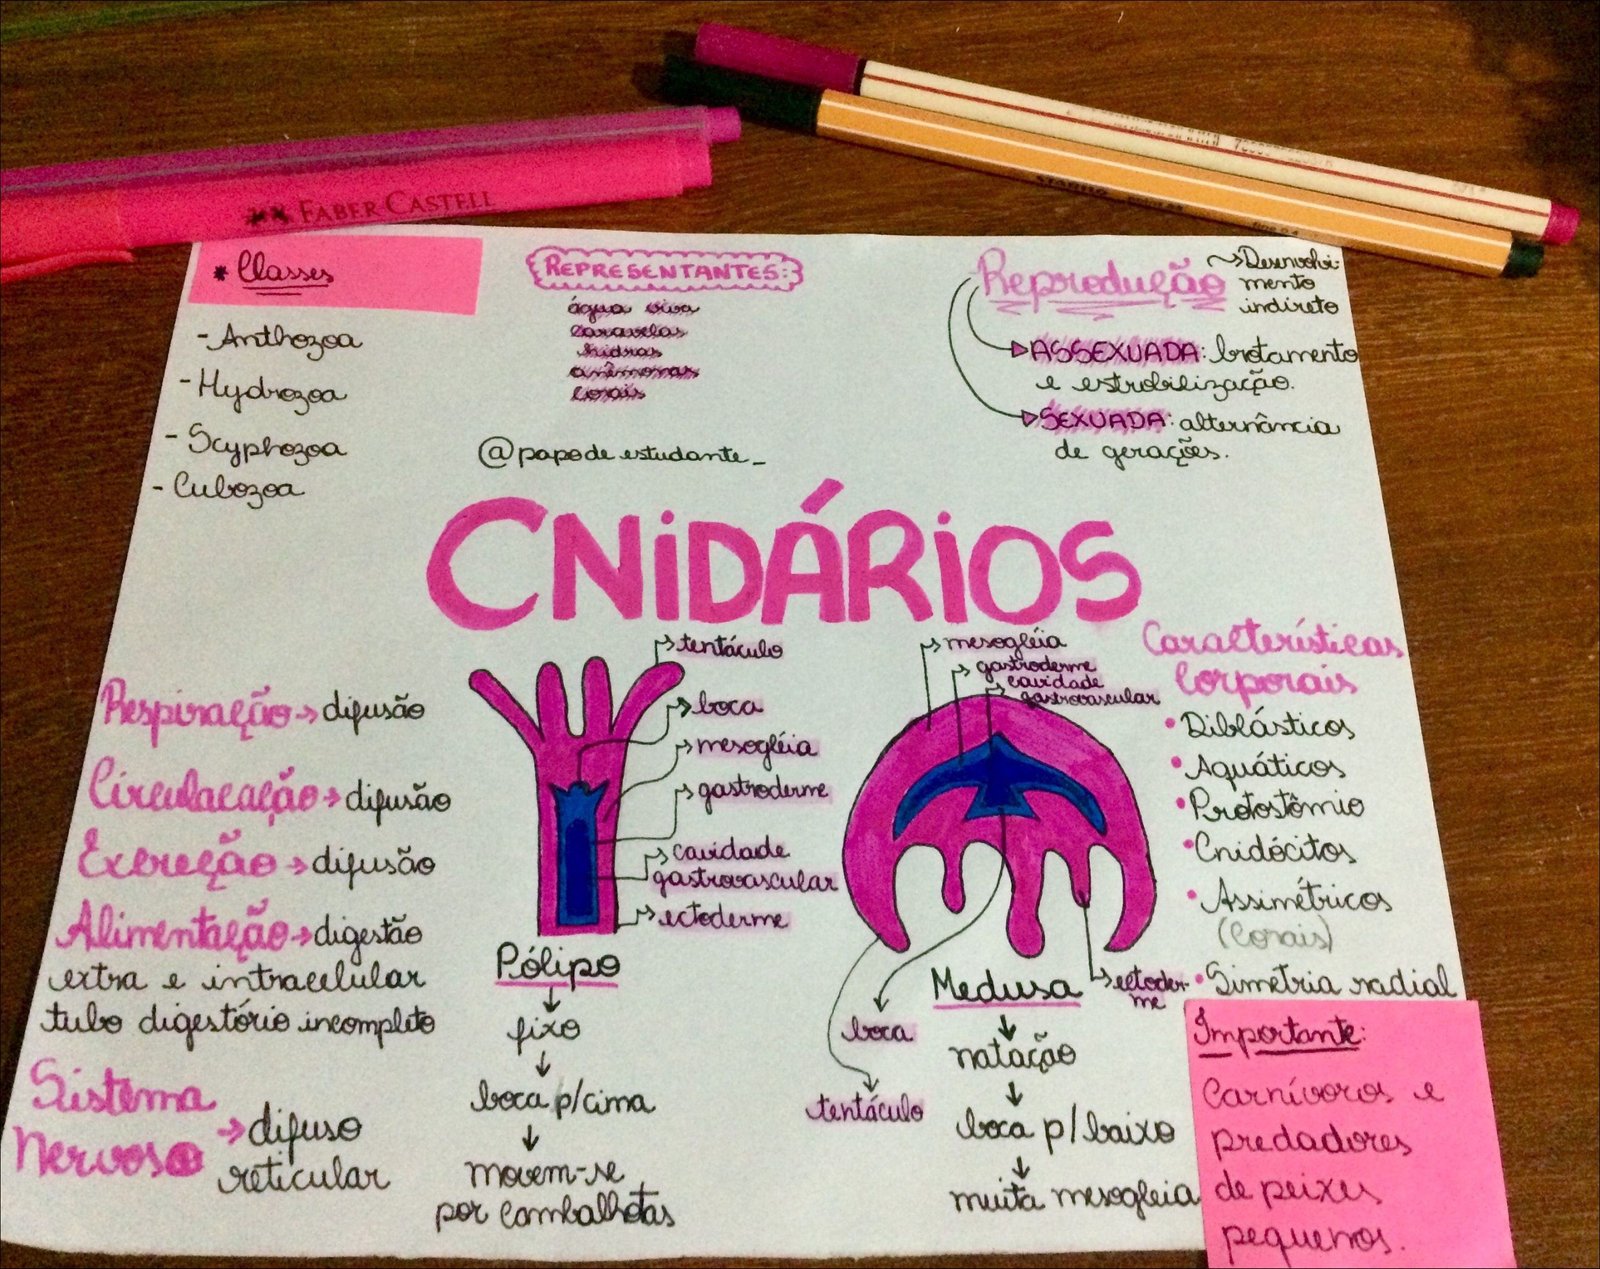 FABER CASTELL
* Classes
- Anthozoa
- Hydrozoa
- Scyphozoa
- Cubozoa
REPRESENTANTES:
água viva
caravelas
hidras
anêmonas
corais
@papode estudante_
Reprodução
Desenvolvi-
mento
indireto
ASSEXUADA: brotamento
e estrobilização.
SEXUADA: alternância
de gerações.
CNIDÁRIOS
Respiração → difusão
Circulacação → difusão
Excreção → difusão
Alimentação → digestão
extra e intracelular
tubo digestório incompleto
Sistema
Nervoso → difuso
reticular
tentáculo
boca
mesogléia
gastroderme
cavidade
gastrovascular
ectoderme
Pólipo
fixo
boca p/cima
movem-se
por cambalhotas
mesogléia
gastroderme
cavidade
gastrovascular
boca
tentáculo
ectoder-
me
Medusa
natação
boca p/baixo
muita mesogleia
Características
Corporais
• Diblásticos
• Aquáticos
• Protostômio
• Cnidócitos
• Assimétricos
(Corais)
• Simetria radial
Importante:
Carnívoros e
predadores
de peixes
pequenos.